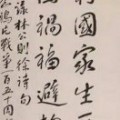 利國家生
因禍福避
錄林公則徐詩句
鴉片戰爭百五十周